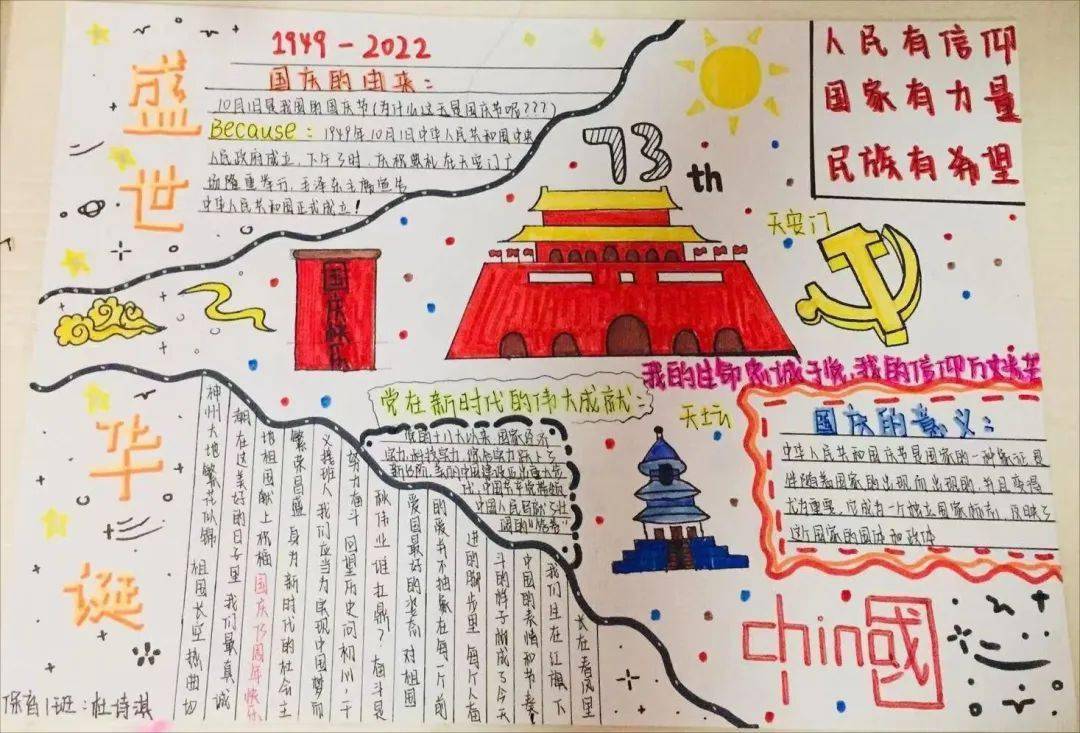 盛世
华诞
1949-2022
国庆的由来:
10月1日是我国的国庆节(为什么这天是国庆节呢???)
Because:1949年10月1日中华人民共和国中央
人民政府成立,下午3时,庆祝典礼在天安门广
场隆重举行,毛泽东主席宣告
中华人民共和国正式成立!
73
th
人民有信仰
国家有力量
民族有希望
天安门
国庆快乐
我的生命忠诚于党,我的信仰万丈光芒
党在新时代的伟大成就:
党的十八大以来,国家经济
实力,科技实力,综合实力跃上
中国共产党
中国人民
天坛
国庆的意义:
中华人民共和国国庆节是国家的一种象征是
伴随着国家的出现而出现的,并且变得
尤为重要,它成为一个独立国家标志,反映了
这个国家的国体和政体
神州大地繁花似锦 祖国长空扬曲
飘在这美好的日子里 我们最真诚
地祖国献上祝福 国庆73周年快乐
繁荣昌盛 身为新时代的社会主
义接班人 我们应当为实现中国梦而
努力奋斗 回望历史问初心,千
秋伟业谁扛鼎?奋斗是
爱国最好的姿态 对祖国
的爱并不抽象在每一个前
进的脚步里 每个人奋
斗的样子
中国的表情和节奏
我们生在红旗下
长在春风里
chin國
保育1班:杜诗淇